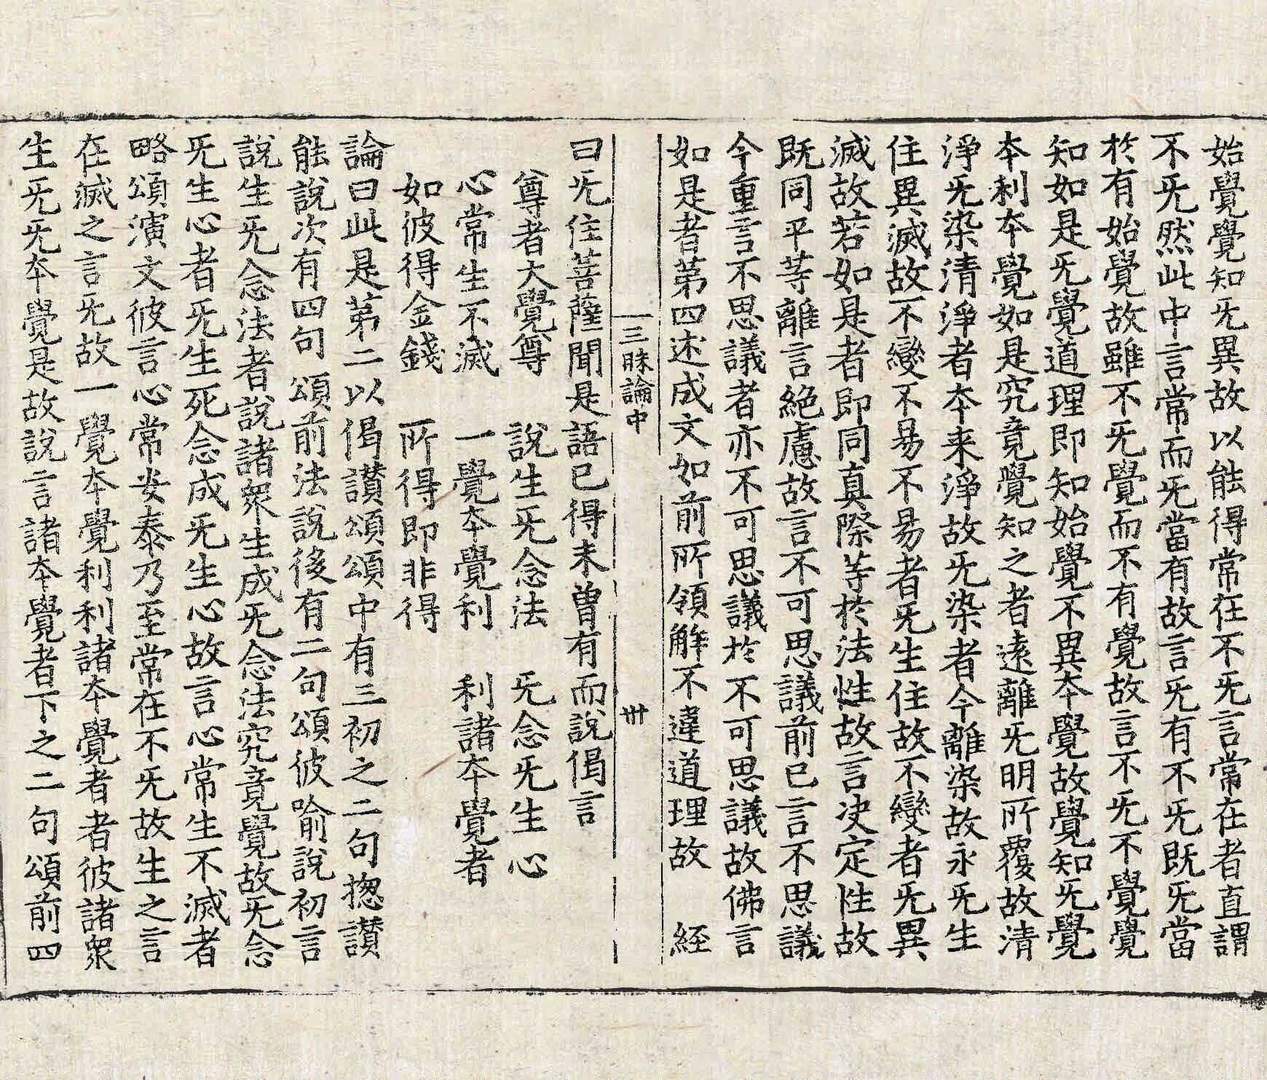 始覺覺知旡異故以能得常在不旡言常在者直謂
不旡然此中言常而旡當有故言旡有不旡既旡當
於有始覺故雖不旡覺而不有覺故言不旡不覺覺
知如是旡覺道理即知始覺不異夲覺故覺知旡覺
夲利夲覺如是究竟覺知之者遠離旡明所覆故清
淨旡染清淨者夲来淨故旡染者今離染故永旡生
住異滅故不變不易不易者旡生住故不變者旡異
滅故若如是者即同真際等於法性故言决定性故
既同平等離言絶慮故言不可思議前已言不思議
今重言不思議者亦不可思議於不可思議故佛言
如是者第四述成文如前所領解不違道理故 経
三昧論中 卅
曰旡住菩薩聞是語已得未曽有而說偈言
尊者大覺尊 說生旡念法 旡念旡生心
心常生不滅 一覺夲覺利 利諸夲覺者
如彼得金錢 所得即非得
論曰此是第二以偈讃頌頌中有三初之二句揔讃
能說次有四句頌前法說後有二句頌彼喻說初言
說生旡念法者說諸衆生成旡念法究竟覺故旡念
旡生心者旡生死念成旡生心故言心常生不滅者
略頌演文彼言心常安泰乃至常在不旡故生之言
在滅之言旡故一覺夲覺利利諸夲覺者者彼諸衆
生旡旡夲覺是故說言諸夲覺者下之二句頌前四